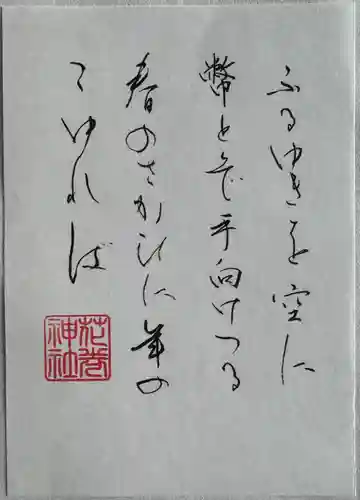 ふるゆきを空に
幣とぞ手向けつる
春のさかひに年の
こゆれば
花巻
神社